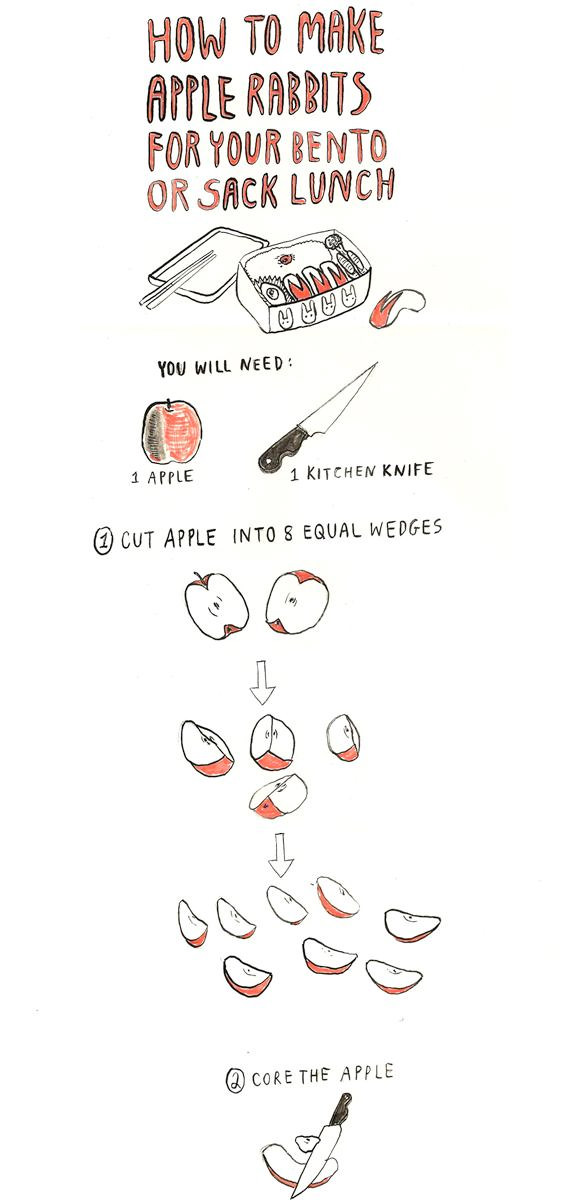 HOW TO MAKE
APPLE RABBITS
FOR YOUR BENTO
OR SACK LUNCH
YOU WILL NEED:
1 APPLE
1 KITCHEN KNIFE
① CUT APPLE INTO 8 EQUAL WEDGES
② CORE THE APPLE